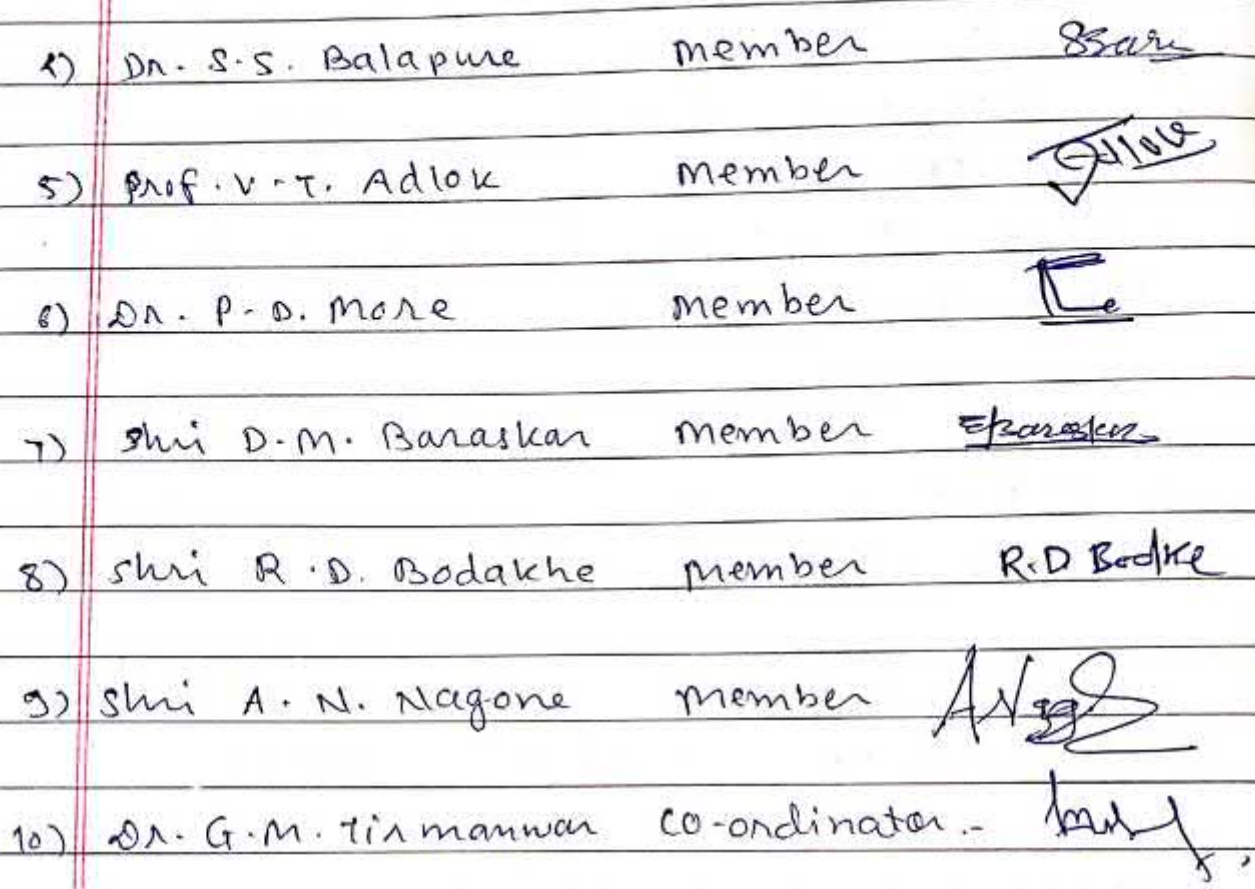 4) Dr. S.S. Balapure member
5) Prof. V.T. Adlok member
6) Dr. P.D. More member
7) Shri D.M. Baraskar member
8) Shri R.D. Bodakhe member R.D Bodkhe
9) Shri A.N. Nagone member
10) Dr. G.M. Tirmanwar co-ordinator.-